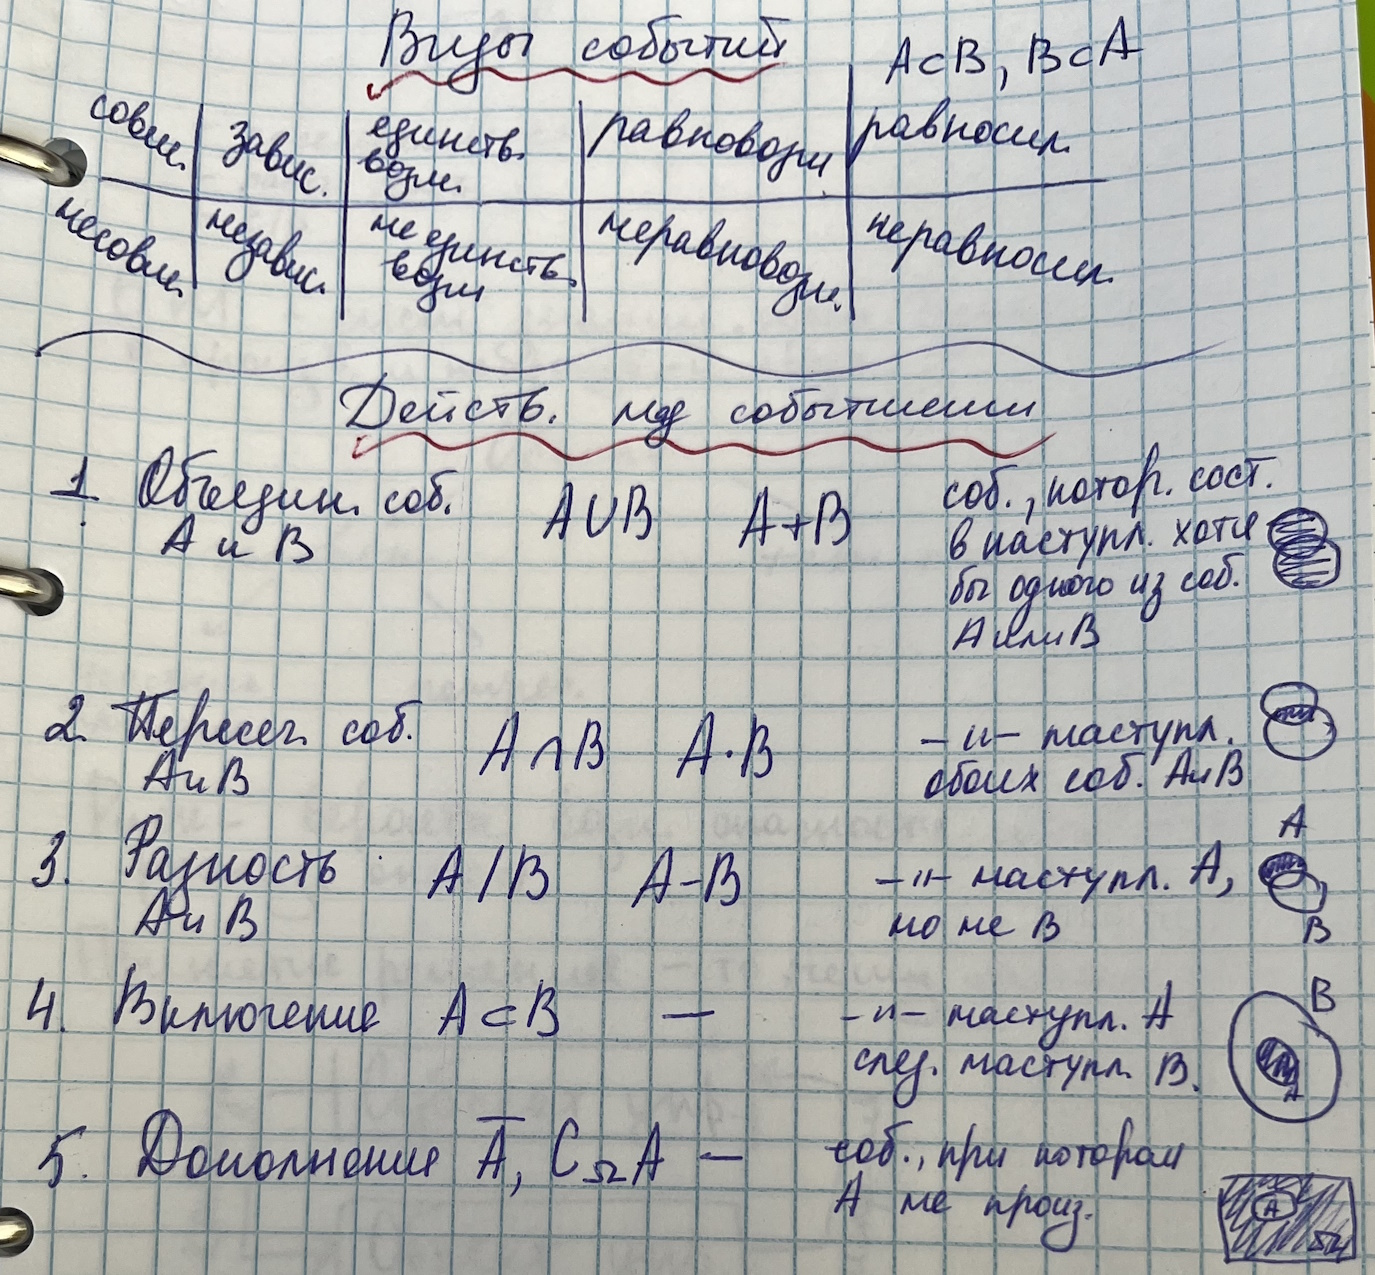 Виды событий
A⊂B, B⊂A
совм. завис. единств. возм. равновозм равносил.
несовм. независ. не единств. возм неравновозм. неравносил.
Действ. над событиями
1. Объедин. соб. A∪B A+B соб., котор. сост.
А и В в наступл. хотя
бы одного из соб.
А или В
2. Пересеч. соб. A∩B A·B -"- наступл.
А и В обоих соб. А и В
3. Разность A/B A-B -"- наступл. А,
А и В но не В
A
B
4. Включение A⊂B — -"- наступл. А
след. наступл. В.
B
A
5. Дополнение A̅, C_Ω A — соб., при котором
А не произ.
A
Ω